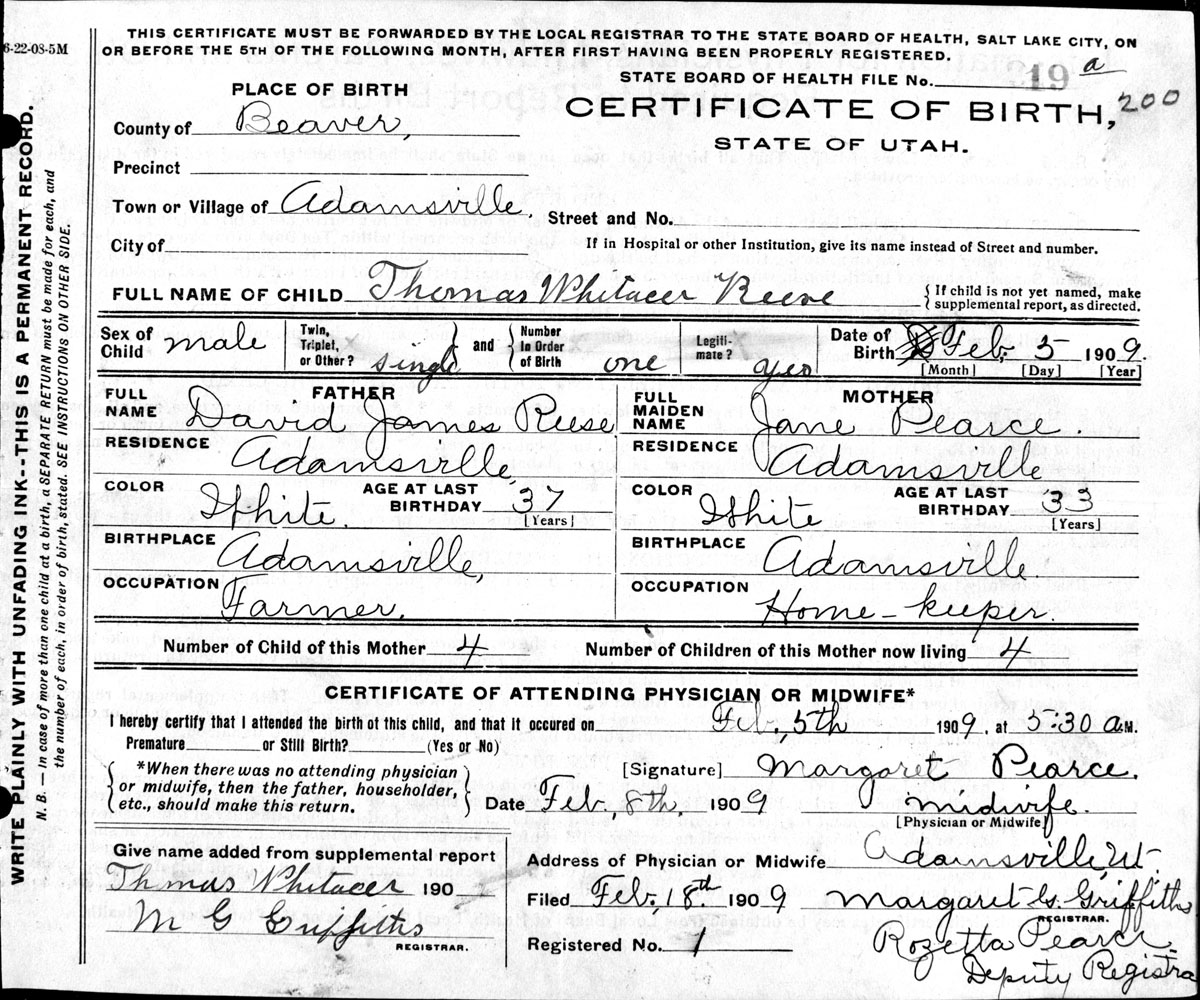 6-22-08-5M
THIS CERTIFICATE MUST BE FORWARDED BY THE LOCAL REGISTRAR TO THE STATE BOARD OF HEALTH, SALT LAKE CITY, ON
OR BEFORE THE 5TH OF THE FOLLOWING MONTH, AFTER FIRST HAVING BEEN PROPERLY REGISTERED.
STATE BOARD OF HEALTH FILE No. 49 a
PLACE OF BIRTH
CERTIFICATE OF BIRTH, 200
STATE OF UTAH.
County of Beaver,
Precinct
Town or Village of Adamsville, Street and No.
City of If in Hospital or other Institution, give its name instead of Street and number.
FULL NAME OF CHILD Thomas Whitacer Reese { If child is not yet named, make
supplemental report, as directed.
Sex of Child male Twin, Triplet, or Other? single and Number In Order of Birth one Legiti-mate? yes Date of Birth Feb. 5 1909.
[Month] [Day] [Year]
FATHER MOTHER
FULL NAME David James Reese FULL MAIDEN NAME Jane Pearce.
RESIDENCE Adamsville, RESIDENCE Adamsville
COLOR White. AGE AT LAST BIRTHDAY 37 [Years] COLOR White AGE AT LAST BIRTHDAY 33 [Years]
BIRTHPLACE Adamsville, BIRTHPLACE Adamsville.
OCCUPATION Farmer. OCCUPATION Home-keeper.
Number of Child of this Mother 4 Number of Children of this Mother now living 4
CERTIFICATE OF ATTENDING PHYSICIAN OR MIDWIFE*
I hereby certify that I attended the birth of this child, and that it occured on Feb., 5th 1909, at 5:30 a.M.
Premature or Still Birth? (Yes or No)
{ *When there was no attending physician
or midwife, then the father, householder,
etc., should make this return. }
[Signature] Margaret Pearce.
Date Feb, 8th, 1909 midwife.
[Physician or Midwife]
Give name added from supplemental report
Thmas Whitacer 190
M G Griffiths
REGISTRAR.
Address of Physician or Midwife Adamsville, Ut.
Filed Feb. 18th 1909 Margaret G. Griffiths
REGISTRAR.
Registered No. 1 Rozetta Pearce
Deputy Registra
WRITE PLAINLY WITH UNFADING INK--THIS IS A PERMANENT RECORD.
N. B. — In case of more than one child at a birth, a SEPARATE RETURN must be made for each, and
the number of each, in order of birth, stated. SEE INSTRUCTIONS ON OTHER SIDE.